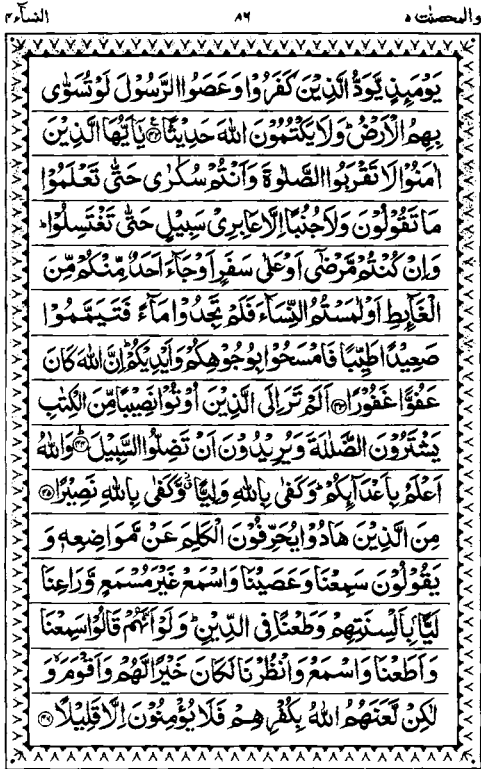 والمحصنت ۵ ۸۶ النسآء ۴
يَوْمَىِٕذٍ يَّوَدُّ الَّذِيْنَ كَفَرُوْا وَعَصَوُا الرَّسُوْلَ لَوْ تُسَوّٰى
بِهِمُ الْاَرْضُ وَلَا يَكْتُمُوْنَ اللّٰهَ حَدِيْثًا ﴿۴۲﴾ يٰۤاَيُّهَا الَّذِيْنَ
اٰمَنُوْا لَا تَقْرَبُوا الصَّلٰوةَ وَاَنْتُمْ سُكٰرٰى حَتّٰى تَعْلَمُوْا
مَا تَقُوْلُوْنَ وَلَا جُنُبًا اِلَّا عَابِرِىْ سَبِيْلٍ حَتّٰى تَغْتَسِلُوْا ؕ
وَاِنْ كُنْتُمْ مَّرْضٰۤى اَوْ عَلٰى سَفَرٍ اَوْ جَآءَ اَحَدٌ مِّنْكُمْ مِّنَ
الْغَآىِٕطِ اَوْ لٰمَسْتُمُ النِّسَآءَ فَلَمْ تَجِدُوْا مَآءً فَتَيَمَّمُوْا
صَعِيْدًا طَيِّبًا فَامْسَحُوْا بِوُجُوْهِكُمْ وَاَيْدِيْكُمْ ؕ اِنَّ اللّٰهَ كَانَ
عَفُوًّا غَفُوْرًا ﴿۴۳﴾ اَلَمْ تَرَ اِلَى الَّذِيْنَ اُوْتُوْا نَصِيْبًا مِّنَ الْكِتٰبِ
يَشْتَرُوْنَ الضَّلٰلَةَ وَيُرِيْدُوْنَ اَنْ تَضِلُّوا السَّبِيْلَ ﴿۴۴﴾ وَاللّٰهُ
اَعْلَمُ بِاَعْدَآىِٕكُمْ ؕ وَكَفٰى بِاللّٰهِ وَلِيًّا ۫ وَّكَفٰى بِاللّٰهِ نَصِيْرًا ﴿۴۵﴾
مِنَ الَّذِيْنَ هَادُوْا يُحَرِّفُوْنَ الْكَلِمَ عَنْ مَّوَاضِعِهٖ وَ
يَقُوْلُوْنَ سَمِعْنَا وَعَصَيْنَا وَاسْمَعْ غَيْرَ مُسْمَعٍ وَّرَاعِنَا
لَيًّا بِاَلْسِنَتِهِمْ وَطَعْنًا فِى الدِّيْنِ ؕ وَلَوْ اَنَّهُمْ قَالُوْا سَمِعْنَا
وَاَطَعْنَا وَاسْمَعْ وَانْظُرْنَا لَكَانَ خَيْرًا لَّهُمْ وَاَقْوَمَ ۙ وَ
لٰكِنْ لَّعَنَهُمُ اللّٰهُ بِكُفْرِهِمْ فَلَا يُؤْمِنُوْنَ اِلَّا قَلِيْلًا ﴿۴۶﴾